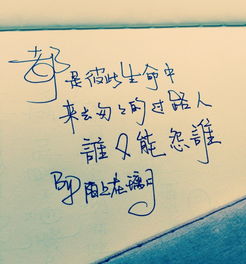 都是彼此生命中
来去匆匆的过路人
誰又能怨誰
By